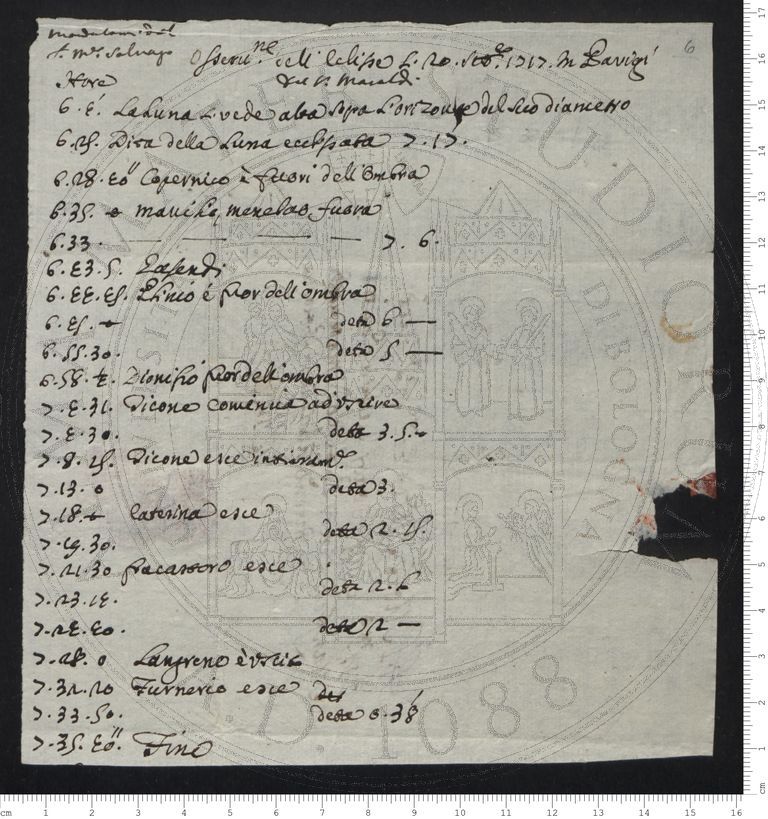 mandatami dal
S. Mse Salvago
6
Osseru.ne dell' Eclisse L. 20. Stbre. 1717. In Parigi
del S. Maraldi
Hore
6. 4. La Luna si vede alta sopra l'orizonte del suo diametro
6.25. Dita della Luna ecclissata 7.17.
6.28. 40" Copernico è fuori dell'ombra
6.35. 0 manilio, menelao fuora
6.33. — — — — 7. 6.
6.43.5. Gasendi
6.44.45. Plinio è fuor dell'ombra
6.45. 0 deta 6 —
6.55.30. deta 5 —
6.58. Dionisio fuor dell'ombra
7.4.31. Ticone comincia ad uscire
7.4.30. deta 3.5.
7.8.15. Ticone esce intieram.te
7.13. 0 deta 3.
7.18. Caterina esce
7.19.30. deta 2.15.
7.21.30 fracastoro esce
7.23.14. deta 2.6
7.24.40. deta 2 —
7.28. 0 Langreno è uscito
7.32.20 Furnerio esce
7.33.50. deta 0.38
7.35.40". Fine
ALMA MATER STUDIORUM
UNIVERSITÀ DI BOLOGNA
A.D. 1088
cm 1 2 3 4 5 6 7 8 9 10 11 12 13 14 15 16
17
16
15
14
13
12
11
10
9
8
7
6
5
4
3
2
1
cm